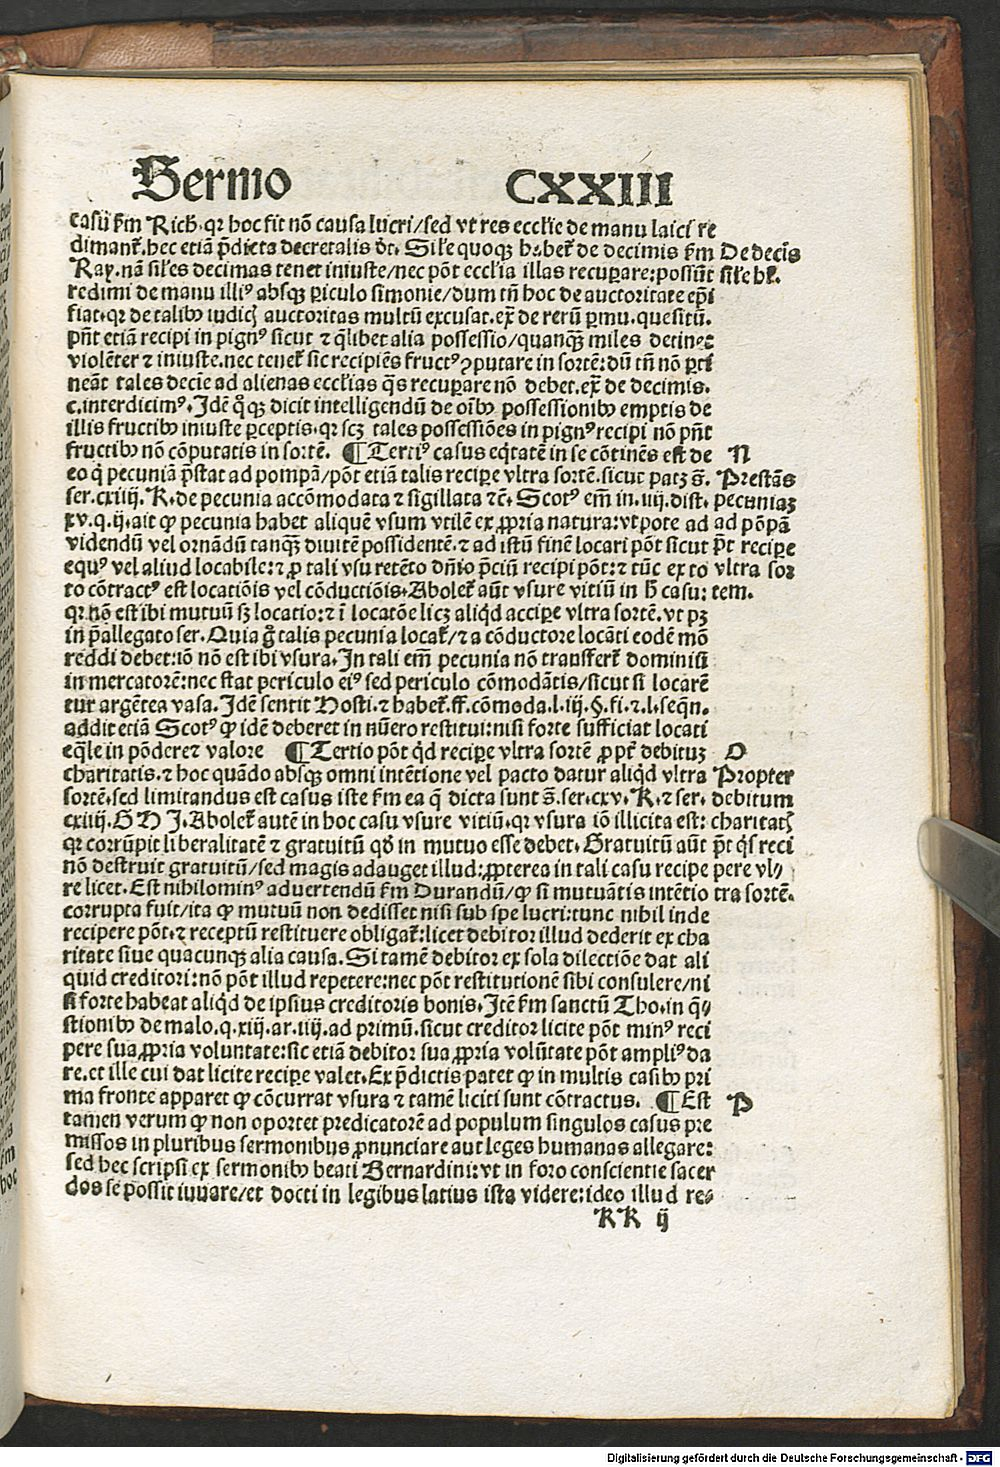 Sermo CXXIII
casū ſm̄ Rich. qr hoc fit nō causa lucri/sed vt res ecclīe de manu laici re
dimant᷑. hec etiā p̄dicta decretalis ƀc. Sil̄e quoqꝫ habet᷑ de decimis ſm̄
Ray. nā sil̄es decimas tenet iniuste/nec pōt eccl̄ia illas recuꝑare: possūt
redimi de manu illiꝰ absqꝫ ꝑiculo simonie/dum tn̄ hoc de auctoritate ep̄i
fiat. qr de talibꝰ iudicꝭ auctoritas multū excusat. ex̄ de rerū ꝑmu. quesitū.
pn̄t etiā recipi in pignꝰ sicut ⁊ q̄libet alia possessio/quanqꝫ miles detinet
violēter ⁊ iniuste. nec tenet᷑ sic recipiēs fructꝰ ꝯputare in sortē: dū tn̄ nō ꝑti
neāt tales decie ad alienas eccl̄ias q̄s recuꝑare nō debet. ex̄ de decimis.
c. interdicimꝰ. Idē q̊qꝫ dicit intelligendū de oībꝰ possessionibꝰ emptis de
illis fructibꝰ iniuste ꝑceptis. qr scꝫ tales possessiōes in pignꝰ recipi nō pn̄t
fructibꝰ nō cōputatis in sortē. ¶Tertiꝰ casus eq̇tatē in se cōtinēs est de
eo q̇ pecuniā p̄stat ad pompā/pōt etiā talis reciꝑe vltra sortē. sicut patꝫ s̄.
ser. cxiiij. K. de pecunia accōmodata ⁊ sigillata ⁊c̄. Scotꝰ em̄ in. iiij. dist.
xv. q. ij. ait ꝙ pecunia habet aliquē vsum vtilē ex ꝓpria natura: vtpote ad
videndū vel ornādū tanqꝫ diuitē possidentē. ⁊ ad istū finē locari pōt sicut
equꝰ vel aliud locabile: ⁊ ꝓ tali vsu retēto dn̄io p̄ciū recipi pōt: ⁊ tūc ex to
to cōtractꝰ est locatiōis vel cōductiōis. Abolet᷑ aūt vsure vitiū in ħ casu:
qr nō est ibi mutuū sꝫ locatio: ⁊ ī locatōe licꝫ aliq̇d acciꝑe vltra sortē. vt pꝫ
in p̄allegato ser. Quia g̊ talis pecunia locat᷑/⁊ a cōductore locāti eodē mō
reddi debet: iō nō est ibi vsura. In tali em̄ pecunia nō transfert᷑ dominiū
in mercatorē: nec stat periculo eiꝰ sed periculo cōmodātis/sicut si locarē
tur argētea vasa. Idē sentit Hosti. ⁊ habet᷑. ff. cōmoda. l. iij. §. fi. ⁊ l. seqn̄.
addit etiā Scotꝰ ꝙ idē deberet in nūero restitui: nisi forte sufficiat locati
eq̄le in pōdere ⁊ valore ¶Tertio pōt q̇d reciꝑe vltra sortē ꝓpt᷑ debitūꝫ
charitatis. ⁊ hoc quādo absqꝫ omni intētione vel pacto datur aliq̇d vltra
sortē. sed limitandus est casus iste ſm̄ ea q̄ dicta sunt s̄. ser. cxv. K. ⁊ ser.
cxiiij. G H I. Abolet᷑ autē in hoc casu vsure vitiū. qr vsura iō illicita est:
qr corrūpit liberalitatē ⁊ gratuitū qđ in mutuo esse debet. Gratuitū aūt
nō destruit gratuitū/sed magis adauget illud: ꝓpterea in tali casu recipe
re licet. Est nihilominꝰ aduertendū ſm̄ Durandū/ꝙ si mutuātis intētio
corrupta fuit/ita ꝙ mutuū non dedisset nisi sub spe lucri: tunc nihil inde
recipere pōt. ⁊ receptū restituere obligat᷑: licet debitor illud dederit ex cha
ritate siue quacunqꝫ alia causa. Si tamē debitor ex sola dilectiōe dat ali
quid creditori: nō pōt illud repetere: nec pōt restitutionē sibi consulere/ni
si forte habeat aliq̇d de ipsius creditoris bonis. Itē ſm̄ sanctū Tho. in q̄
stionibꝰ de malo. q. xiij. ar. iiij. ad primū. sicut creditor licite pōt minꝰ reci
pere sua ꝓpria voluntate: sic etiā debitor sua ꝓpria volūtate pōt ampliꝰ da
re. et ille cui dat licite reciꝑe valet. Ex p̄dictis patet ꝙ in multis casibꝰ pri
ma fronte apparet ꝙ cōcurrat vsura ⁊ tamē liciti sunt cōtractus. ¶Est
tamen verum ꝙ non oportet predicatorē ad populum singulos casus pre
missos in pluribus sermonibus ꝓnunciare aut leges humanas allegare:
sed hec scripsi ex sermonibꝰ beati Bernardini: vt in foro conscientie sacer
dos se possit iuuare/et docti in legibus latius ista videre: ideo illud re-
KK ij
De decīs
sil̄e hꝫ.
N
Prestās
pecuniaꝫ
ad pōpā
p̄t reciꝑe
vltra sor
tem.
O
Propter
debitum
charitatꝭ
p̄t q̇s reci
pere vl
tra sortē.
P
Digitalisierung gefördert durch die Deutsche Forschungsgemeinschaft - DFG